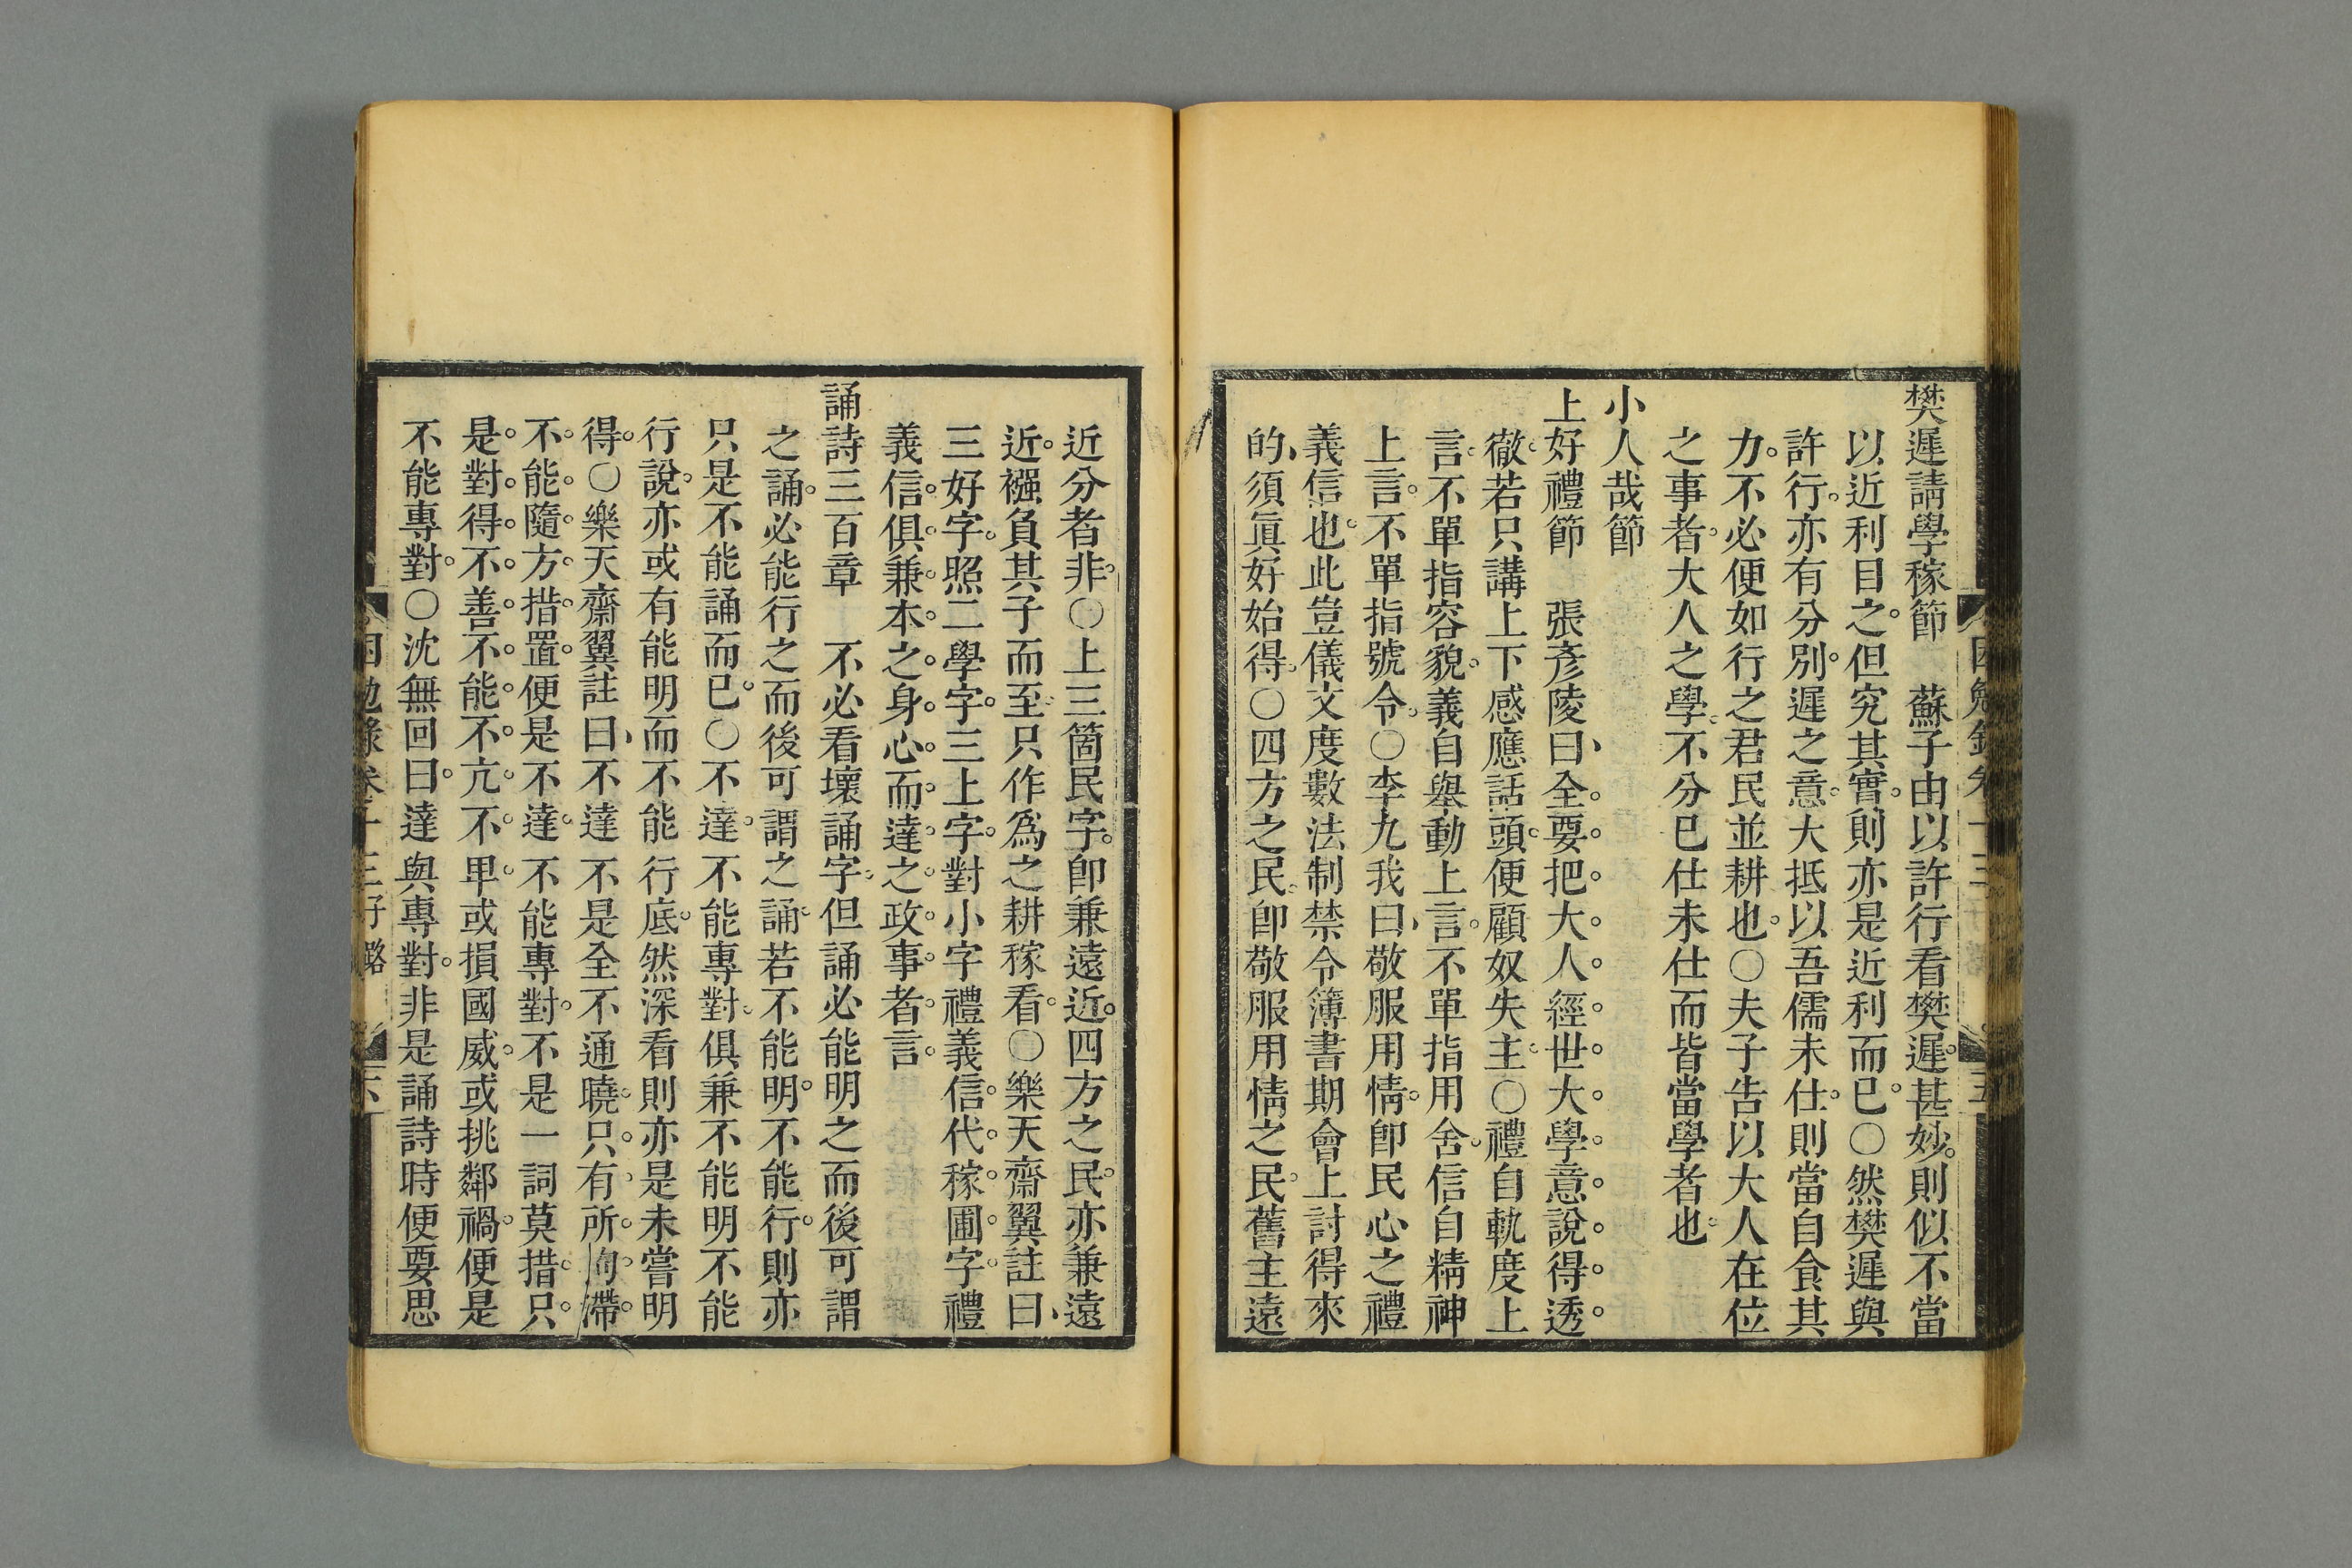 樊遲請學稼節　蘇子由以許行看樊遲。甚妙。則似不當
以近利目之。但究其實。則亦是近利而已。〇然樊遲與
許行。亦有分別。遲之意。大抵以吾儒未仕。則當自食其
力。不必便如行之君民並耕也。〇夫子告以大人在位
之事者。大人之學。不分已仕未仕而皆當學者也。
小人哉節
上好禮節　張彥陵曰、全要把大人經世大學意說得透
徹。若只講上下感應話頭。便顧奴失主。〇禮自軌度上
言。不單指容貌。義自舉動上言。不單指用舍。信自精神
上言。不單指號令。〇李九我曰、敬服用情。卽民心之禮
義信也。此豈儀文度數法制禁令簿書期會上討得來
的、須眞好始得。〇四方之民。卽敬服用情之民。舊主遠
近分者非。〇上三箇民字。卽兼遠近。四方之民。亦兼遠
近。襁負其子而至。只作爲之耕稼看。〇樂天齋翼註曰、
三好字。照二學字。三上字。對小字禮義信。代稼圃字。禮
義信。俱兼本之身心而達之政事者言。
誦詩三百章　不必看壞誦字。但誦必能明之而後可謂
之誦。必能行之而後可謂之誦。若不能明。不能行。則亦
只是不能誦而已。〇不達。不能專對。俱兼不能明不能
行說。亦或有能明而不能行底。然深看則亦是未嘗明
得。〇樂天齋翼註曰、不達不是全不通曉。只有所拘滯。
不能隨方措置。便是不達。不能專對。不是一詞莫措。只
是對得不善。不能不亢不卑。或損國威。或挑鄰禍。便是
不能專對。〇沈無回曰。達與專對。非是誦詩時便要思
困勉錄卷十三
五
困勉錄卷十三子路
六